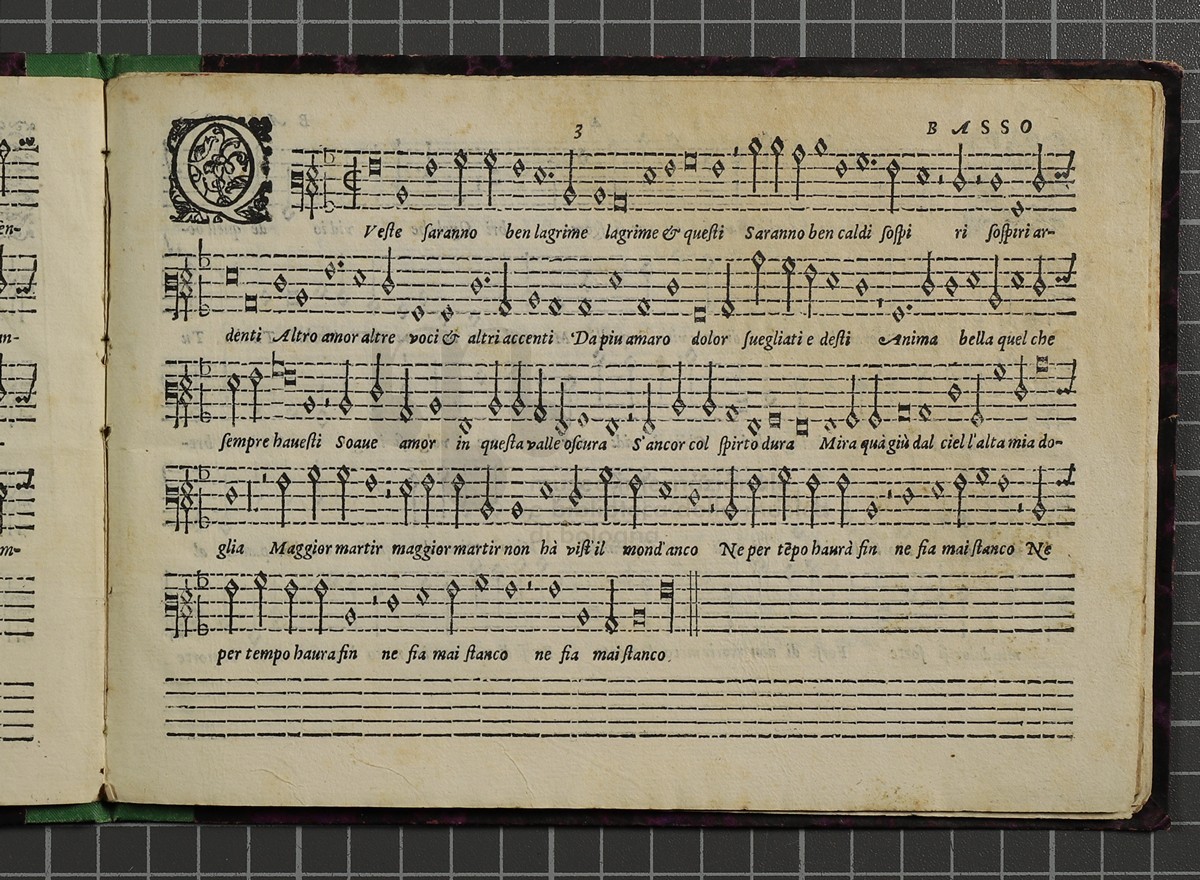 3 BASSO
QVeste saranno ben lagrime lagrime & questi Saranno ben caldi sospi ri sospiri ar-
denti Altro amor altre voci & altri accenti Da piu amaro dolor suegliati e desti Anima bella quel che
sempre hauesti Soaue amor in questa valle oscura S'ancor col spirto dura Mira quà giù dal ciel l'alta mia do-
glia Maggior martir maggior martir non hà vist'il mond'anco Ne per tẽpo haurà fin ne fia mai stanco Ne
per tempo haura fin ne fia mai stanco ne fia mai stanco.